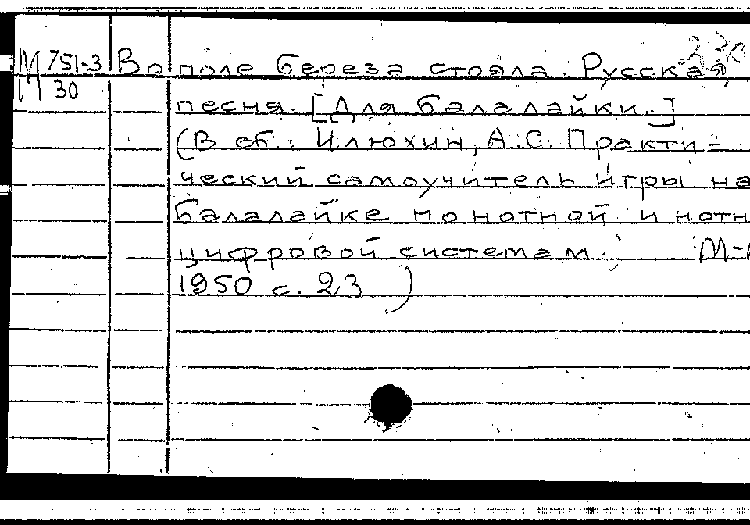 М 751-3 Во поле береза стояла. Русская
30 песня. [Для балалайки.]
(В сб.: Илюхин, А.С. Практи-
ческий самоучитель игры на
балалайке по нотной и нотн
цифровой системам. М-
1950 с. 23)